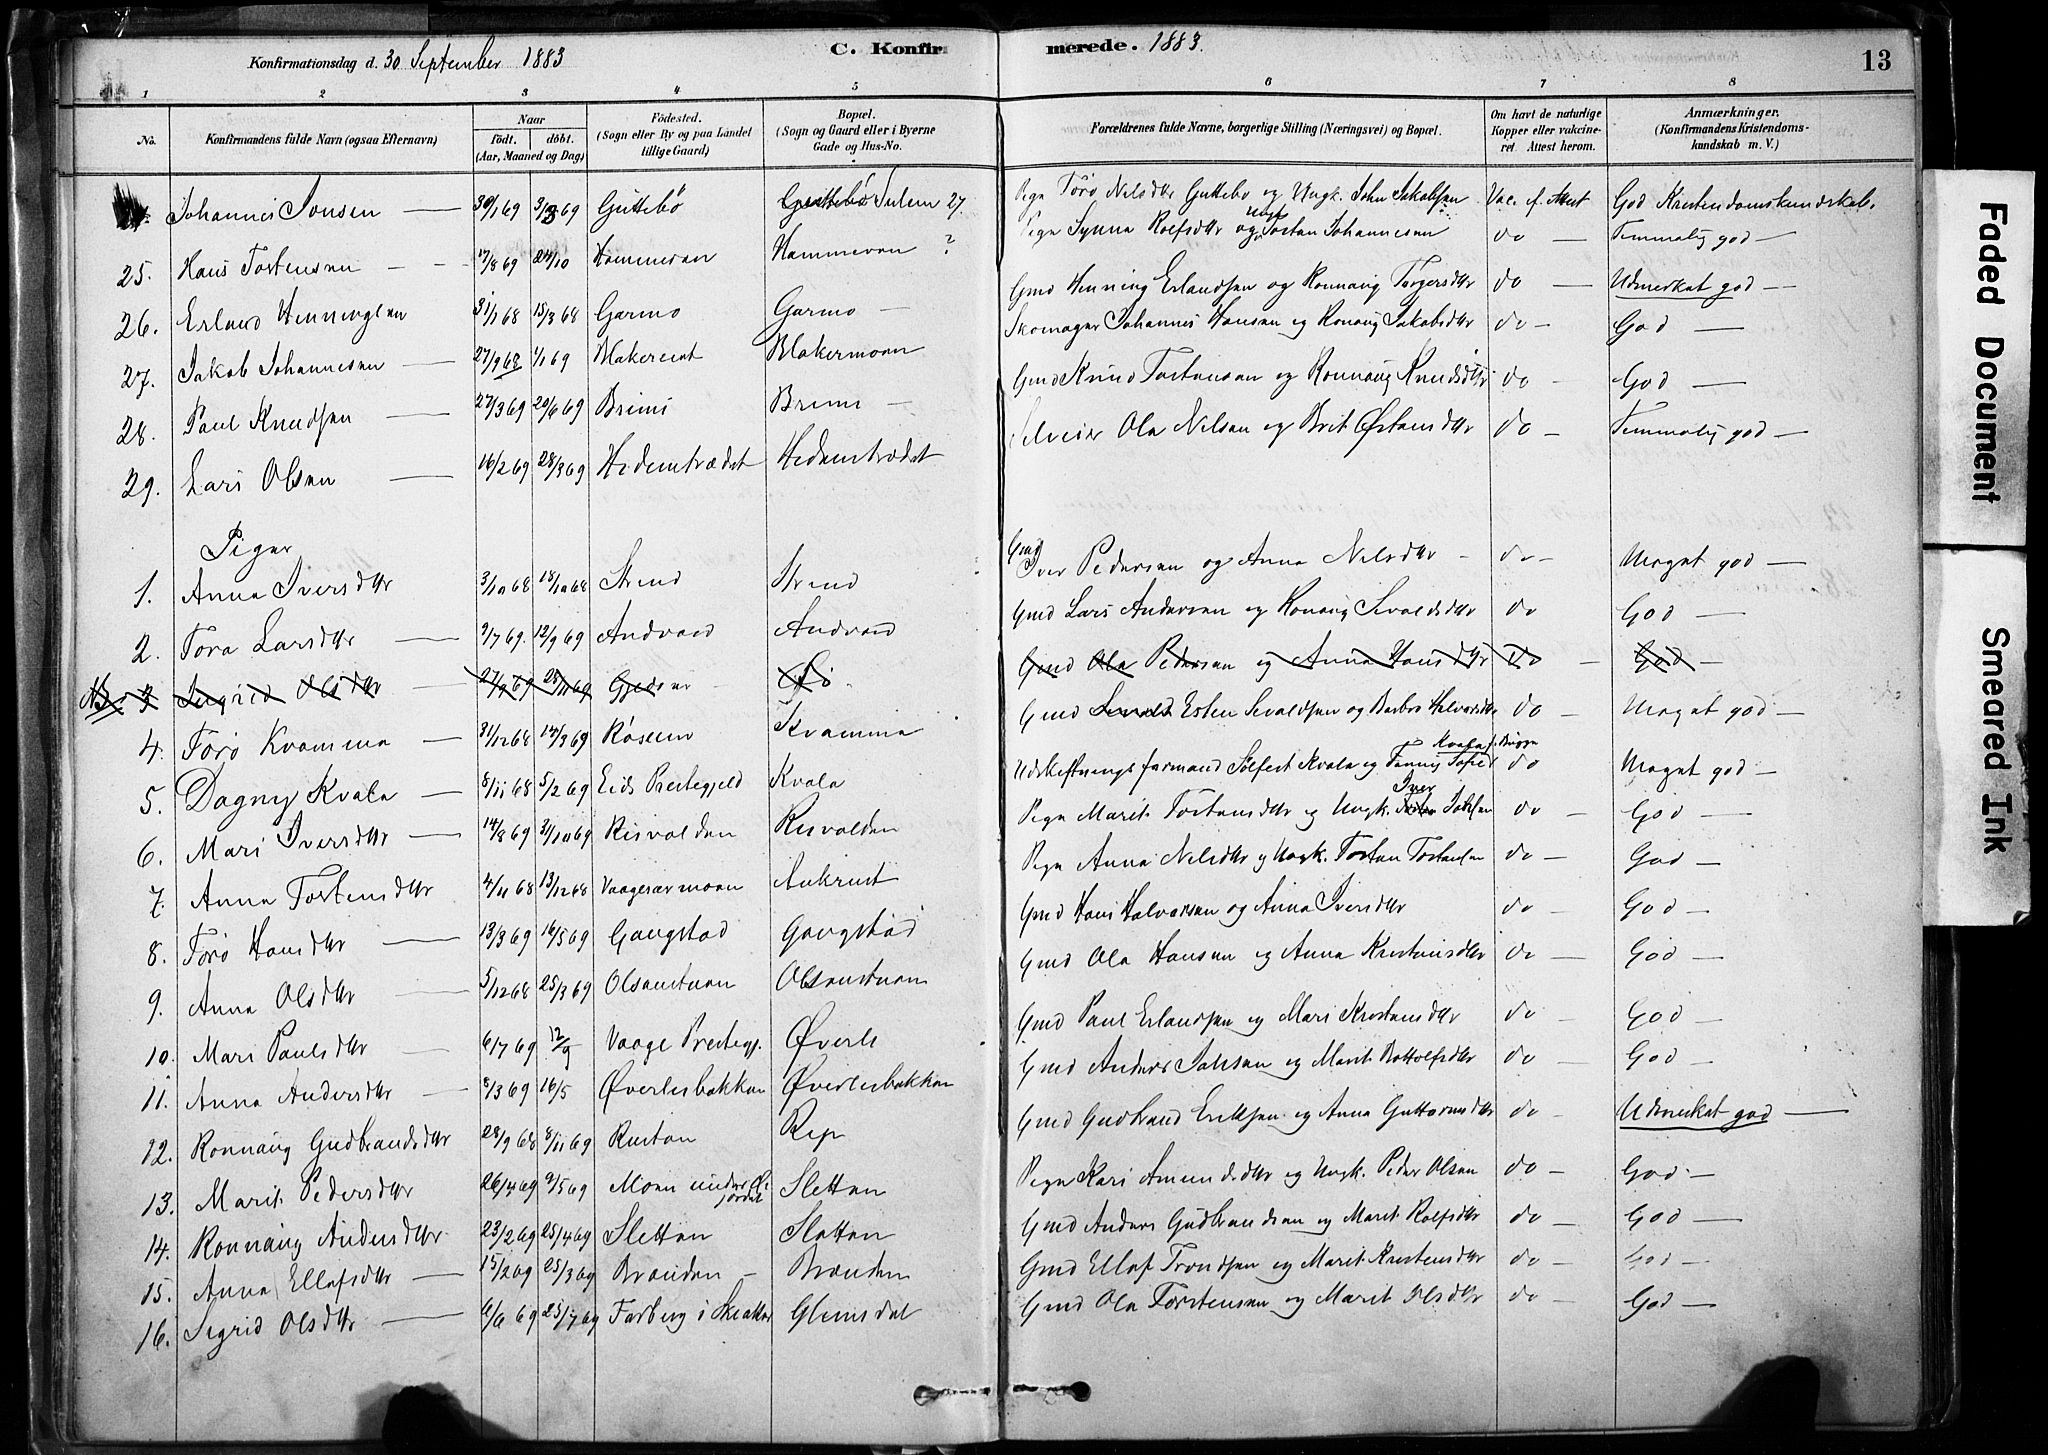 Konfirmationsdag d. 30 September 1883 C. Konfirmerede. 1883. 13
1 2 3 4 5 6 7 8
No. Konfirmandens fulde Navn (ogsaa Efternavn) Naar født. døbt. (Aar, Maaned og Dag) Fødested. (Sogn eller By og paa Landet tillige Gaard) Bopæl. (Sogn og Gaard eller i Byerne Gade og Hus-No. Forældrenes fulde Navne, borgerlige Stilling (Næringsvei) og Bopæl. Om havt de naturlige Kopper eller vakcineret. Attest herom. Anmærkninger. (Konfirmandens Kristendomskundskab m. V.)
Johannes Jonsen 30/1 69 3/3 69 Guttebø Guttebø Sulem 27. Pige Tørø Nilsdtr Guttebø og Ungk. John Jakobsen Vac. ef. Attest God Kristendomskundskab.
25. Hans Tostensen 17/8 69 24/10 Hammeren Hammeren ? Pige Synna Rolfsdtr og Ungk Tostan Johannesen do Temmelig god
26. Erland Henningsen 31/1 68 15/3 68 Garmo Garmo Gmd Henning Erlandsen og Ronnaug Torgersdtr do Udmerket god
27. Jakob Johannesen 27/9 68 1/1 69 Blakereint Blakermoen Skomager Johannes Hansen og Ronaug Jakobsdtr do God
28. Paul Knudsen 27/3 69 20/6 69 Brimi Brimi Gmd Knud Tostensen og Ronnaug Knudsdtr do God
29. Lars Olsen 16/2 69 28/3 69 Hedemtrædet Hedemtrædet Selveier Ola Nilsen og Brit Østensdtr do Temmelig god
Piger
1. Anna Iversdtr 3/10 68 18/10 68 Strind Strind Gmd Iver Pedersen og Anna Nilsdtr do Meget god
2. Tora Larsdtr 9/7 69. 12/9 69 Andvord Andvord Gmd Lars Andersen og Ronaug Sivaldsdtr do God
3 Ingrid Olsdtr 27/9 69 28/11 69 Gjeisar Gmd Ola Pedersen og Anna Hansdtr do God
4. Tørø Kvamma 31/12 68 14/3 69 Røseim Kvamma Gmd Sivald Esten Sivaldsen og Barbro Halvorsdtr do Meget god
5. Dagny Kvala 8/11 68 5/2 69 Eids Prestegjeld Kvala Udskiftningsformand Sølfest Kvala og Fanny Sofie Kvala f. Brigge do Meget god
6. Mari Iversdtr 14/8 69 31/10 69 Risvolden Risvolden Pige Marit Tostensdtr og Ungk. Iver Johsen do God
7. Anna Tostensdtr 4/11 68 13/12 68 Vaagesærmoen Aukrust Pige Anna Nilsdtr og Ungk. Tostan Tostensen do God
8. Tørø Hansdtr 13/3 69 16/5 69 Gaugstad Gaugstad Gmd Hans Halvorsen og Anna Iversdtr do God
9. Anna Olsdtr 5/12 68 25/3 69 Olsenstuen Olsenstuen Gmd Ola Hansen og Anna Kristensdtr do God
10. Mari Paulsdtr 6/7 69 12/9 Vaage Prestegj. Øverli Gmd Paul Erlandsen og Mari Kristensdtr do God
11. Anna Andersdtr 8/3 69 16/5 Øverlisbakken Øverlisbakken Gmd Anders Johsen og Marit Bottolfsdtr do God
12. Ronnaug Gudbrandsdtr 28/9 68 8/11 69 Rusten Rep Gmd Gudbrand Eriksen og Anna Guttormsdtr do Udmerket god
13. Marit Pedersdtr 26/4 69 9/5 69 Moen under Øi- jordet Sletten Pige Kari Amundsdtr og Ungk. Peder Olsen do God
14. Ronnaug Andersdtr 23/2 69 25/4 69 Sletten Sletten Gmd Anders Gudbrandsen og Marit Rolfsdtr do God
15. Anna Ellefsdtr 15/2 69 25/3 69 Brænden Brænden Gmd Ellef Trondsen og Marit Kristensdtr do God
16. Sigrid Olsdtr 6/6 69 25/7 69 Farberg i Skeaker Glemsdal Gmd Ola Torstensen og Marit Olsdtr do God
Faded Document
Smeared Ink